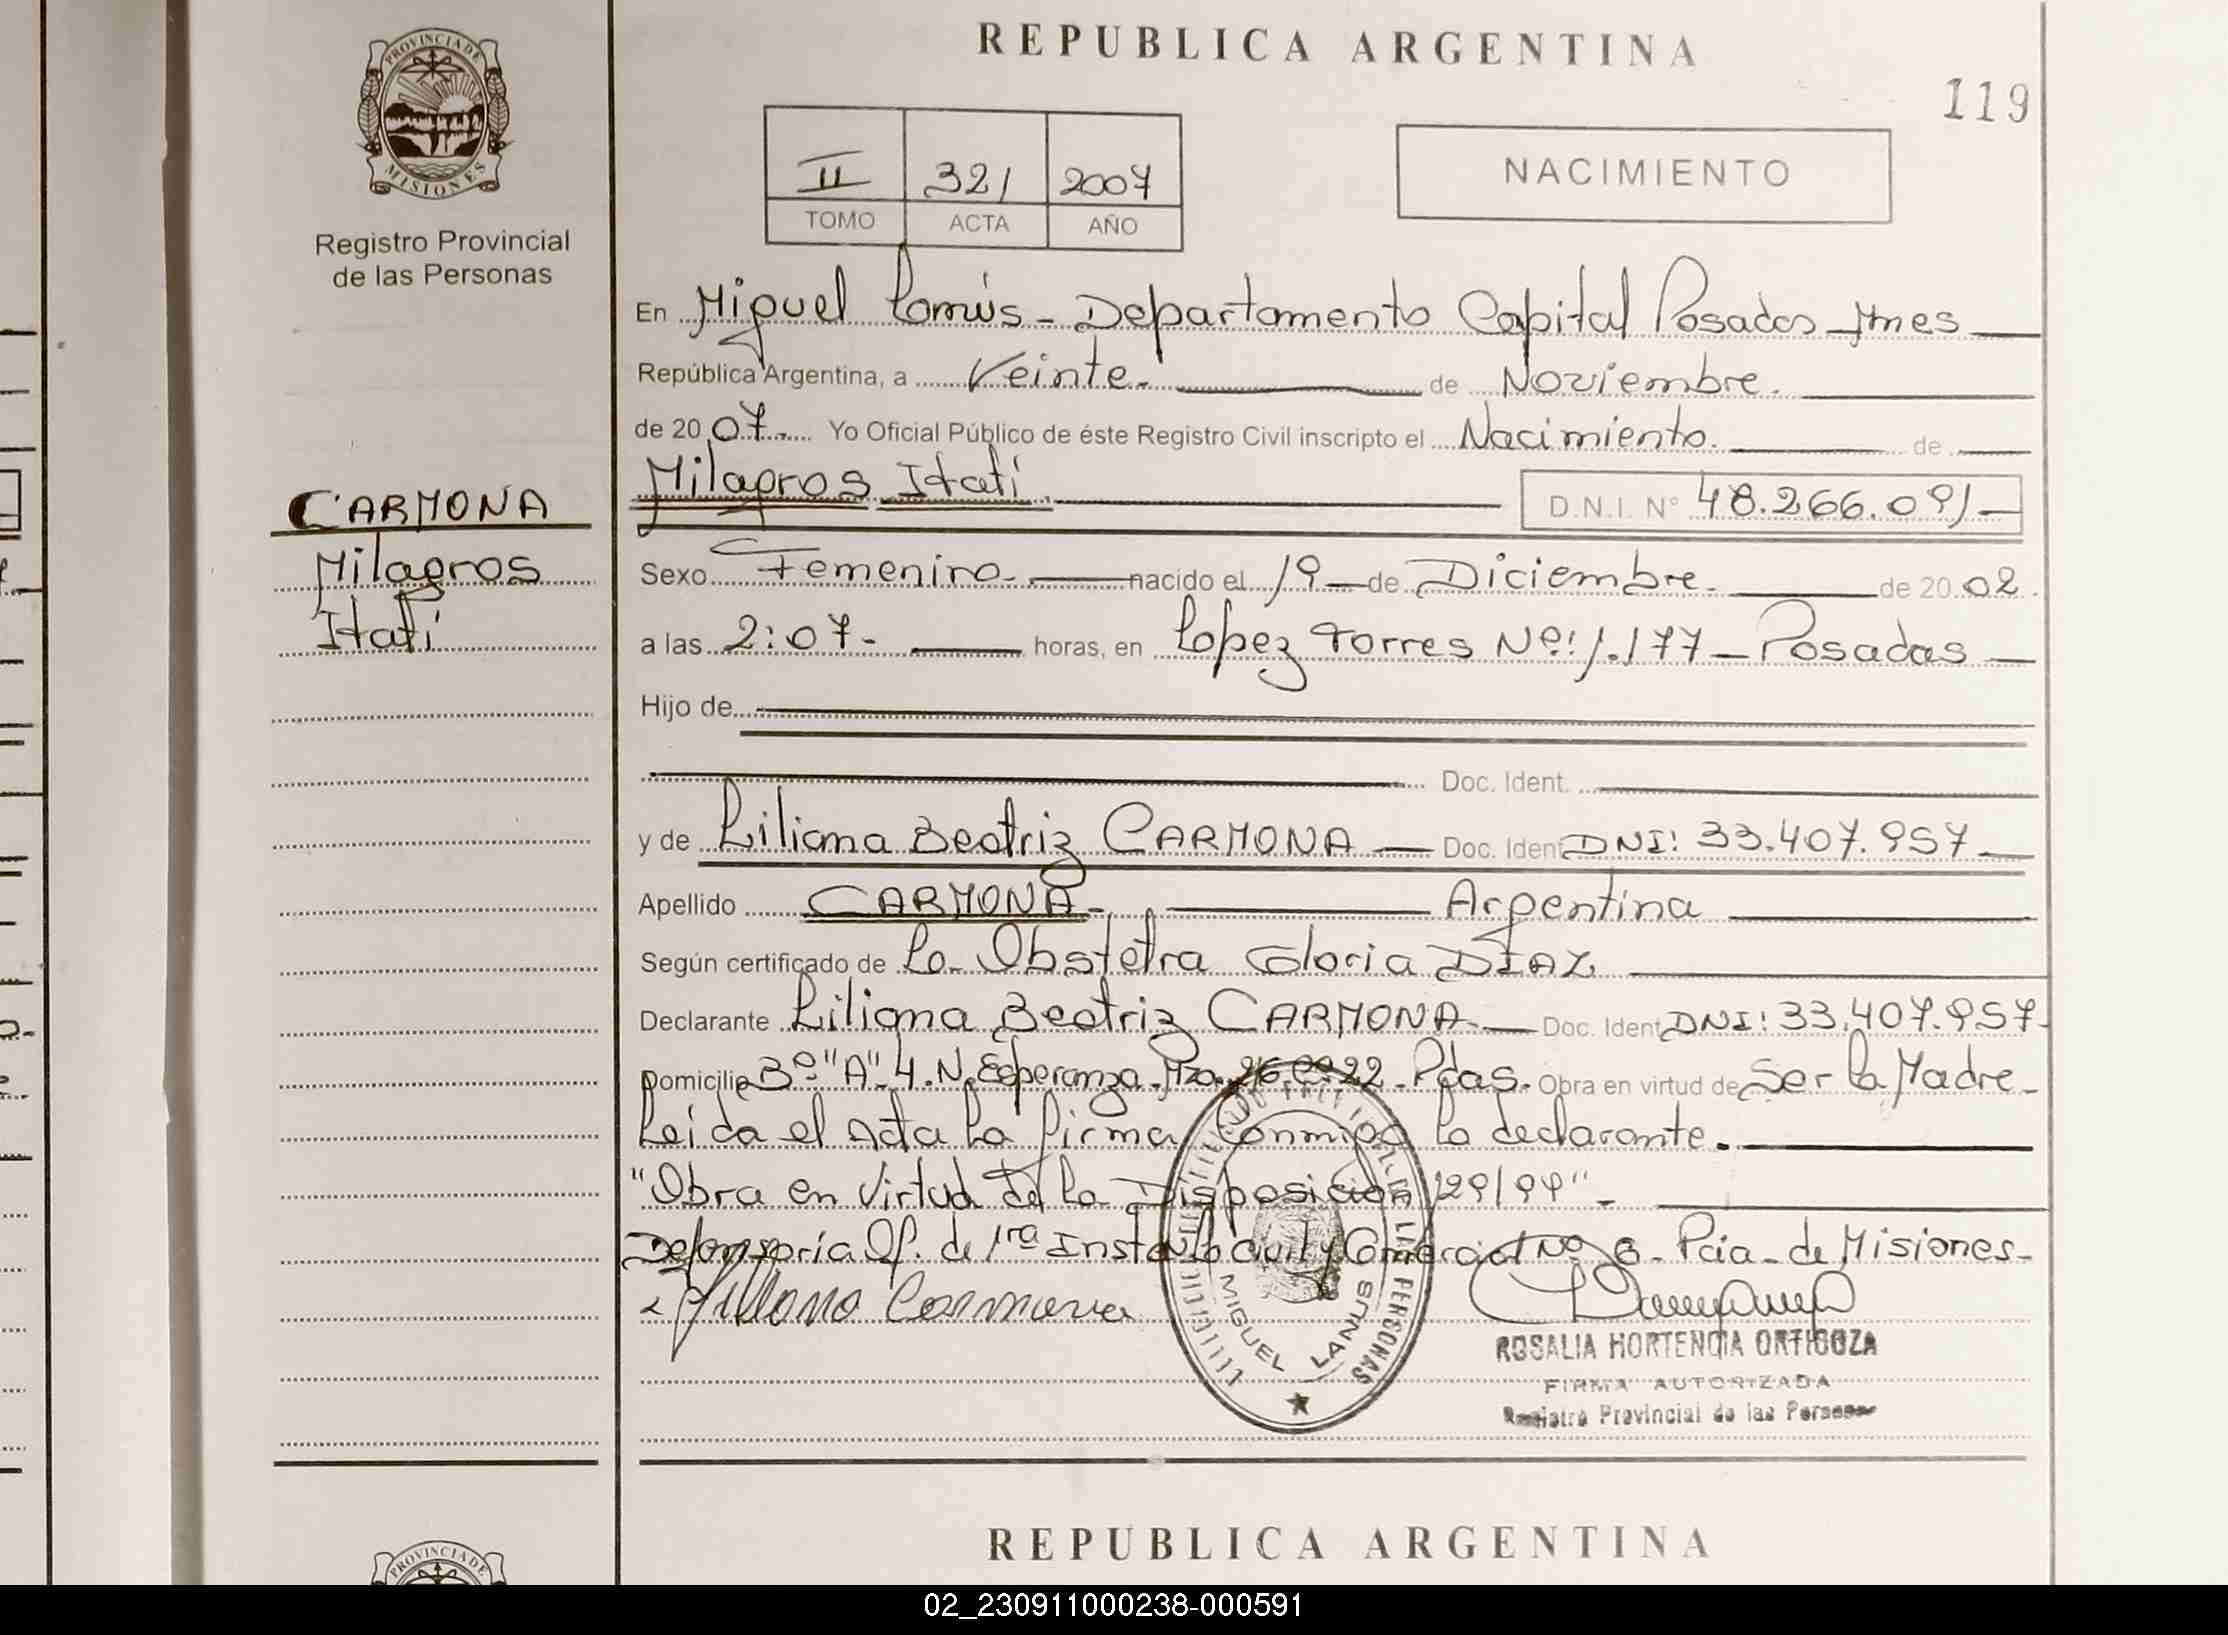 REPUBLICA ARGENTINA
119
PROVINCIA DE
MISIONES
Registro Provincial
de las Personas
II 321 2007
TOMO ACTA AÑO
NACIMIENTO
En Miguel Lanús - Departamento Capital Posadas Mnes
República Argentina, a Veinte. de Noviembre.
de 20 07. Yo Oficial Público de éste Registro Civil inscripto el Nacimiento. de
Milagros Itatí
D.N.I. N° 48.266.091
CARMONA
Milagros
Itatí
Sexo Femenino. nacido el 19 de Diciembre. de 20 02
a las 2:07- horas, en Lopez Torres Nº: 1.177 - Posadas
Hijo de
Doc. Ident.
y de Liliana Beatriz CARMONA Doc. Ident DNI: 33.407.957
Apellido CARMONA. Argentina
Según certificado de La Obstetra Gloria DIAZ
Declarante Liliana Beatriz CARMONA Doc. Ident DNI: 33.407.957
Domicilio Bº "A" 4. N. Esperanza. Mza. 26. Cª 22. Pdas. Obra en virtud de Ser la Madre
Leída el Acta La firma Conmigo la declarante.
"Obra en Virtud de la Disposición 129/94"
Defensoría Of. de 1ra Insta. Lo civil y Comercial Nº 6 - Pcia - de Misiones
Liliana Carmona
LAS PERSONAS
MIGUEL LANUS
ROSALIA HORTENCIA ORTIGOZA
FIRMA AUTORIZADA
Registro Provincial de las Personas
REPUBLICA ARGENTINA
PROVINCIA DE
02_230911000238-000591